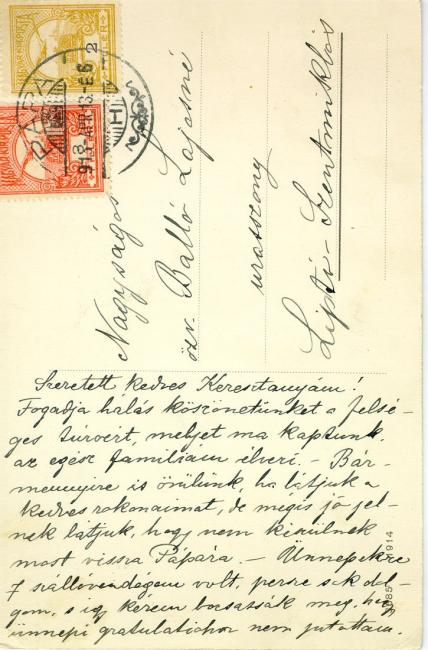 PÁPA
913 APR 3
Nagyságos
özv. Balló Lajosné
uraszony
Liptó-Szentmiklós
Szeretett kedves Keresztanyám!
Fogadja hálás köszönetünket a felsé-
ges túróért, melyet ma kaptunk,
az egész familiám élvezi. - Bár-
mennyire is örülünk, ha látjuk a
kedves rokonaimat, de mégis jó jel-
nek látjuk, hogy nem készülnek
most vissza Pápára. - Ünnepekre
7 szállóvendégem volt, persze sok dol-
gom, s így kérem bocsássák meg, hogy
ünnepi gratulatióhoz nem jutottam.
1914